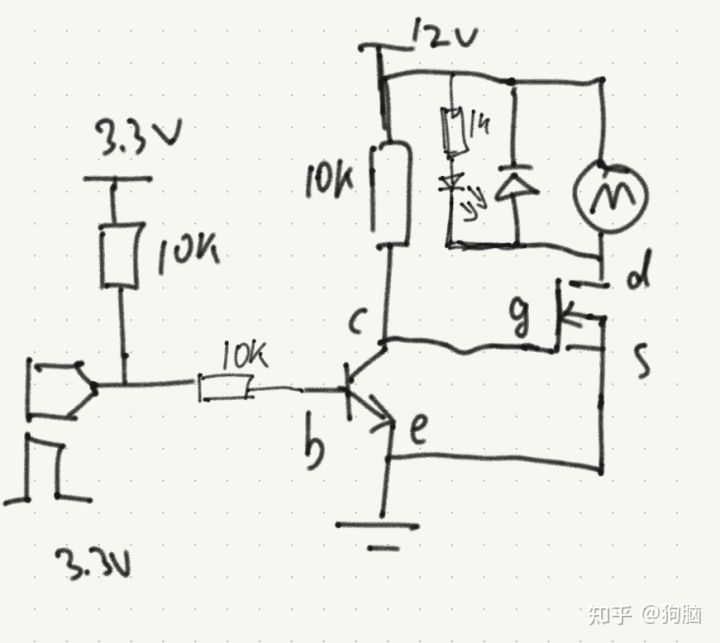 12V
3.3V
1K
10K
10K
M
d
g
c
10K
s
b
e
3.3V
知乎 @狗脑